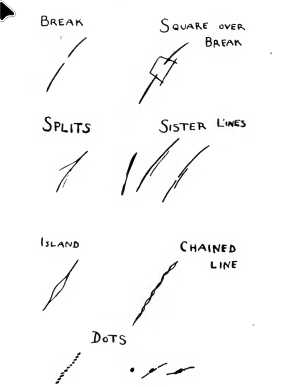 BREAK
SQUARE OVER
BREAK
SPLITS
SISTER LINES
ISLAND
CHAINED
LINE
DOTS